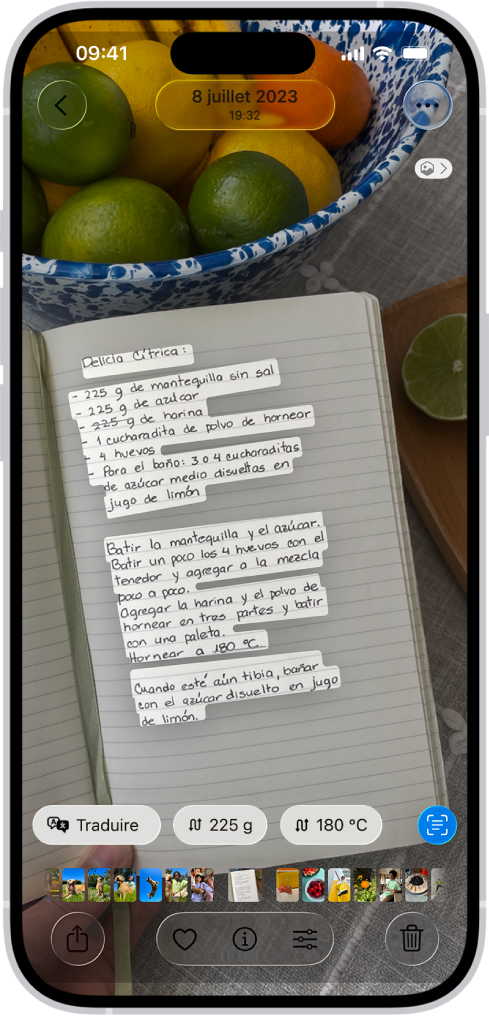 09:41
8 juillet 2023
19:32
Delicia Cítrica:
- 225 g de mantequilla sin sal
- 225 g de azúcar
- 225 g de harina
- 1 cucharadita de polvo de hornear
- 4 huevos
- Para el baño: 3 o 4 cucharaditas
de azúcar medio disueltas en
jugo de limón
Batir la mantequilla y el azúcar.
Batir un poco los 4 huevos con el
tenedor y agregar a la mezcla
poco a poco.
Agregar la harina y el polvo de
hornear en tres partes y batir
con una paleta.
Hornear a 180 °C.
Cuando esté aún tibia, bañar
con el azúcar disuelto en jugo
de limón.
Traduire
225 g
180 °C